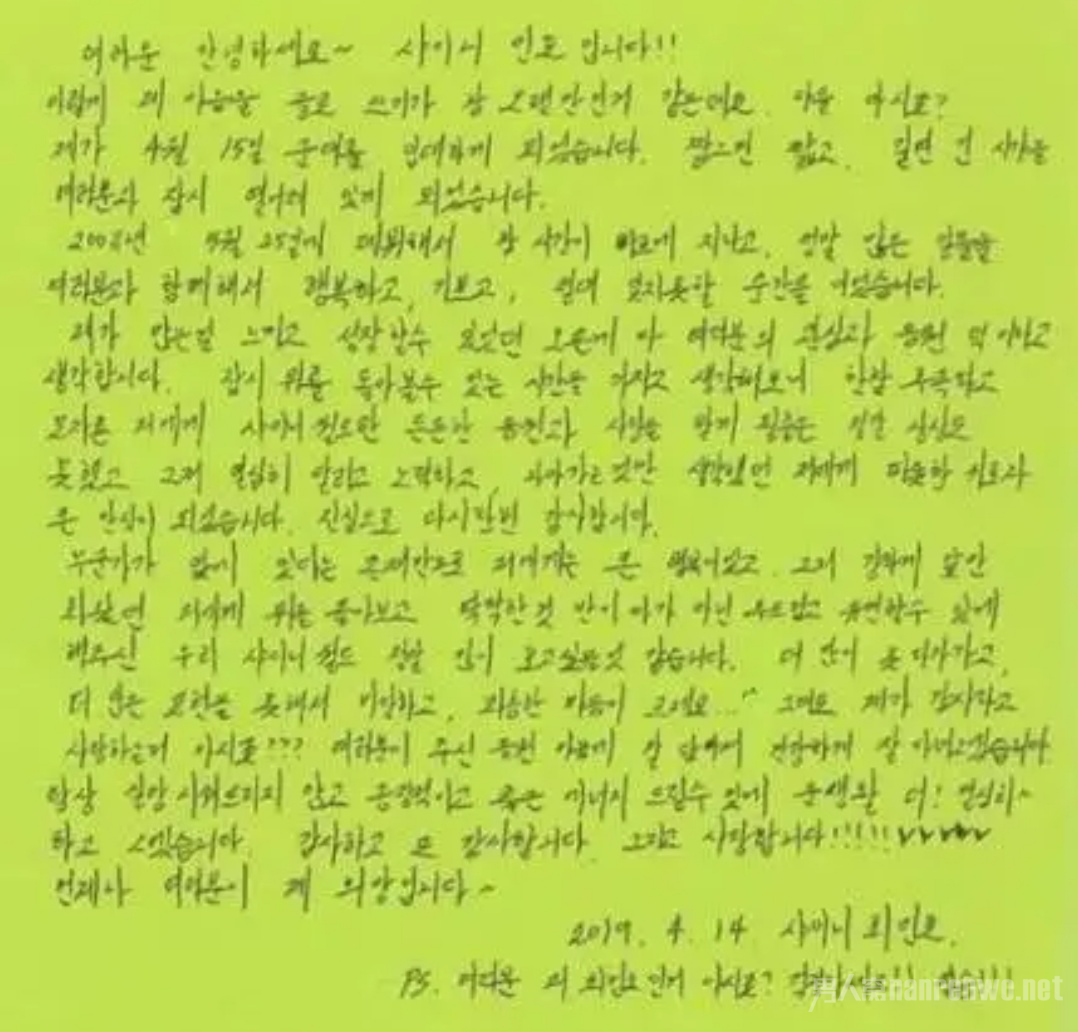 여러분 안녕하세요~ 샤이니 민호 입니다!!
이렇게 제 마음을 글로 쓰기가 참 오랜만인거 같은데요. 다들 아시죠?
제가 4월 15일 군대를 입대하게 되었습니다. 짧으면 짧고, 길면 긴 시간을
여러분과 잠시 떨어져 있게 되었습니다.
2008년 5월 25일에 데뷔해서 참 시간이 빠르게 지나고, 정말 많은 일들을
여러분과 함께해서 행복하고, 기쁘고, 절대 잊지못할 순간들 이었습니다.
제가 많은걸 느끼고 성장할수 있었던 모든게 다 여러분의 관심과 응원 덕이라고
생각합니다. 잠시 뒤를 돌아볼수 있는 시간을 가지고 생각해보니 한참 부족하고
모자른 저에게 샤이니월드란 든든한 응원과 사랑을 받게 될줄은 정말 상상도
못했고 그저 열심히 달리고 노력하고, 나아가는것만 생각했던 저에게 따뜻한 위로과
큰 안식이 되었습니다. 진심으로 다시한번 감사합니다.
누군가가 곁에 있다는 존재만으로 저에게는 큰 힘이 그저 강하게 앞만
저에게 뒤를 돌아보고 딱딱한 것 만이 다가 아닌 부드럽고 유연할수 있게
해주신 우리 샤이니월드 정말 많이 보고싶을것 같습니다. 더 많이 못 다가가고,
더 많은 표현을 못해서 미안하고, 죄송한 마음이 크네요...^^ 그래도 제가 감사하고
사랑하는거 아시죠??? 여러분이 주신 응원 마음에 잘 담아서 건강하게 잘 다녀오겠습니다
항상 실망 시켜드리지 않고 긍정적이고 좋은 에너지 드릴수 있게 군생활 더! 열심히~
하고 오겠습니다. 감사하고 또 감사합니다. 그리고 사랑합니다!!!!! VVVVV
언제나 여러분이 제 희망입니다~
2019. 4. 14 샤이니 최민호.
PS. 여러분 저 최민호인거 아시죠? !! !!!
男人窝nanrenwc.net